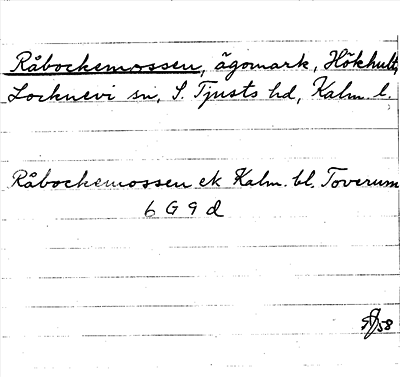 Råbockemossen, ägomark, Hökhult,
Locknevi sn, S. Tjusts hd, Kalm. l.
Råbockemossen ek Kalm. bl. Toverum
6 G 9 d
58